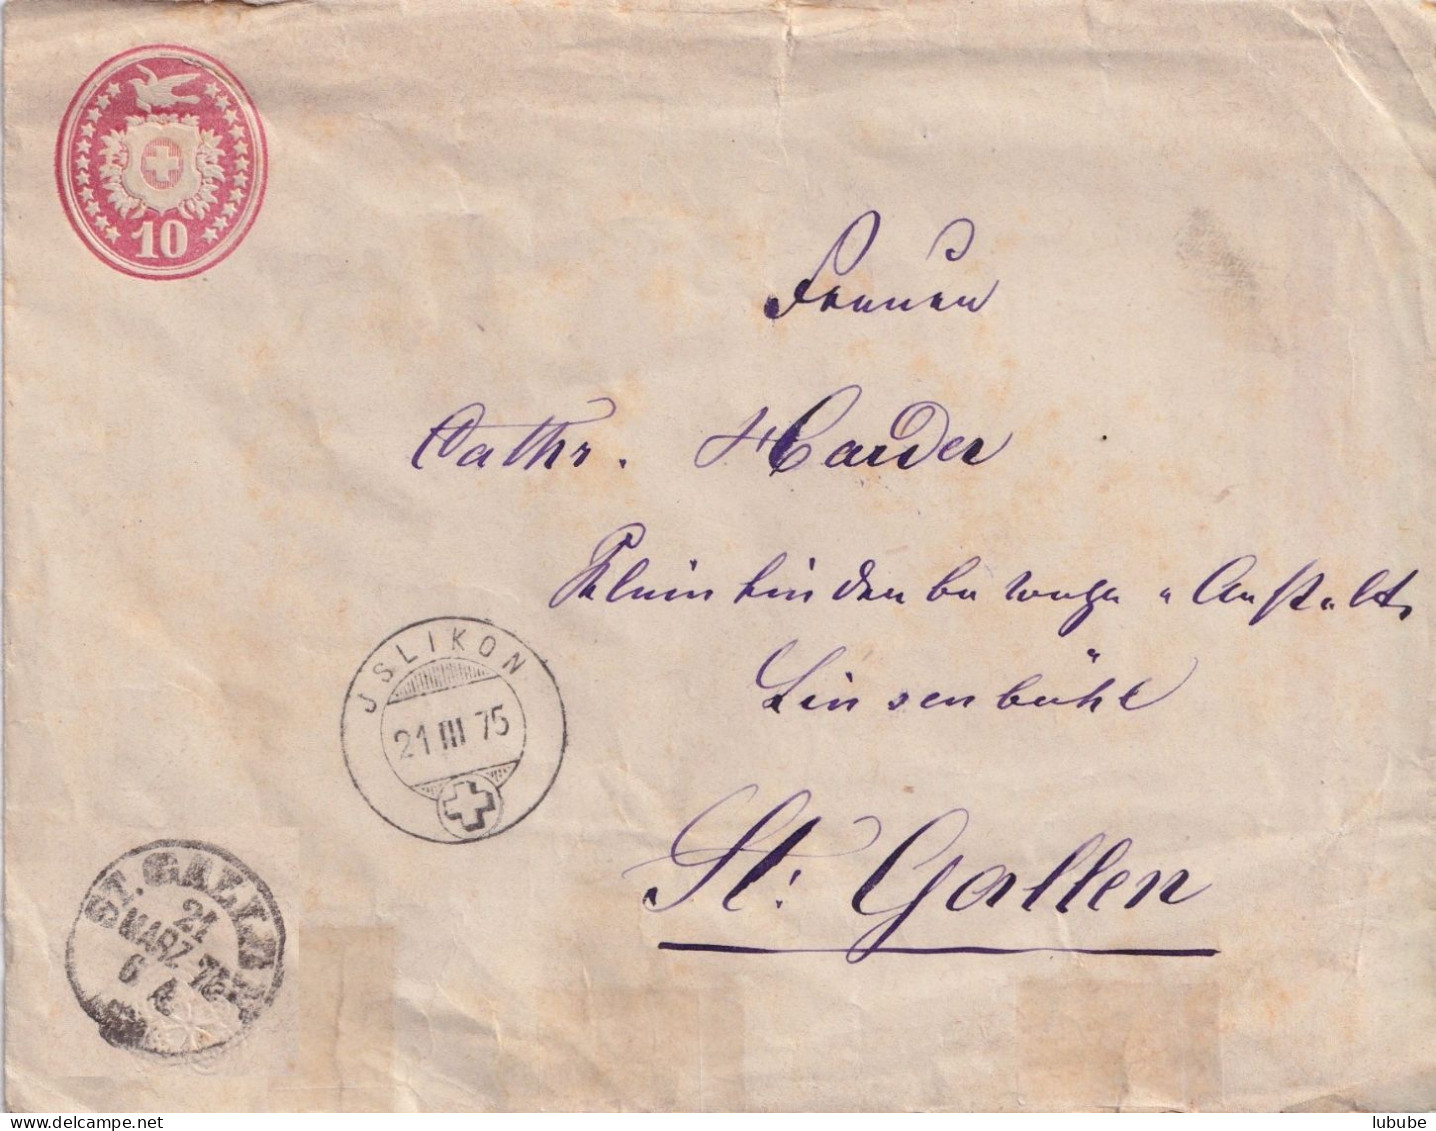 10
Frauen
Cathr. Harder
Kleinkinderbewahr "Anstalt,
Linsenbühl
St. Gallen
JSLIKON
21 III 75
ST. GALLEN
21
MARZ 75
6
lubube
delcampe.net